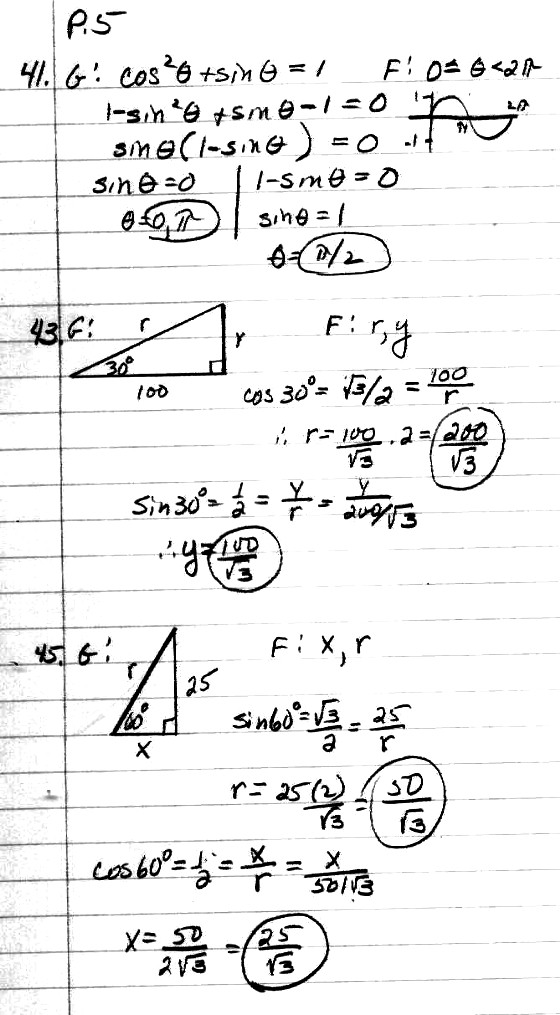 P.5
41. G: cos²θ + sinθ = 1 F: 0 ≤ θ < 2π
1 - sin²θ + sinθ - 1 = 0 1 π 2π -1
sinθ(1 - sinθ) = 0
sinθ = 0 | 1 - sinθ = 0
θ = 0, π | sinθ = 1
θ = π/2
43. G: r y 30° 100 F: r, y
cos 30° = √3/2 = 100/r
∴ r = 100/√3 · 2 = 200/√3
sin 30° = 1/2 = y/r = y/200/√3
∴ y = 100/√3
45. G: r 25 60° x F: x, r
sin 60° = √3/2 = 25/r
r = 25(2)/√3 = 50/√3
cos 60° = 1/2 = x/r = x/50/√3
x = 50/2√3 = 25/√3